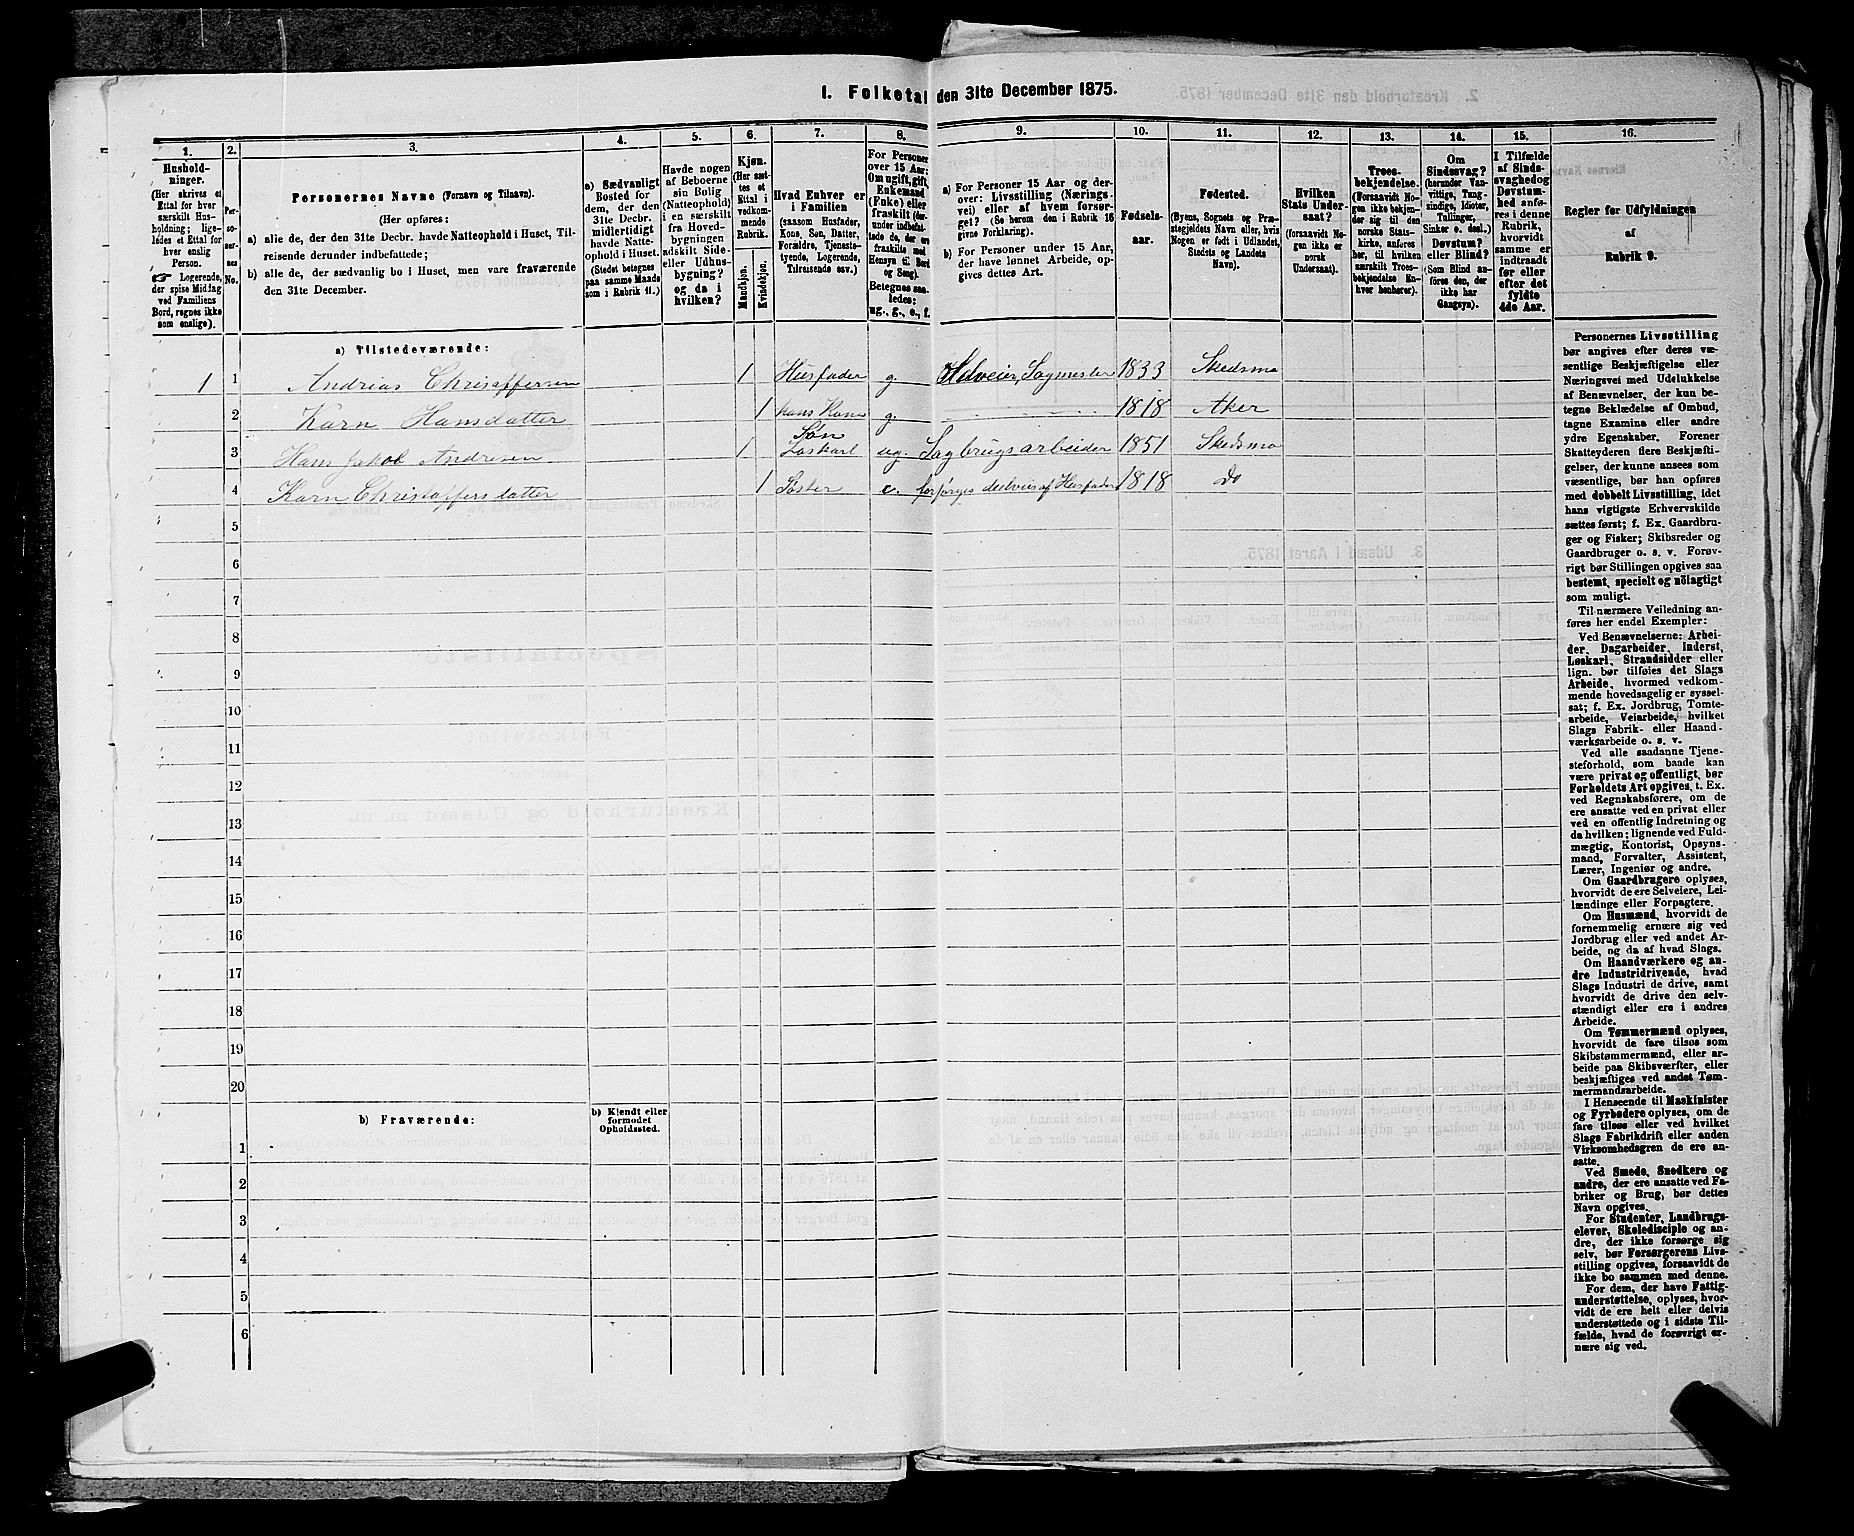 I. Folketal den 31te December 1875.
1. 2. 3. 4. 5. 6. 7. 8. 9. 10. 11. 12. 13. 14. 15. 16.
Hushold-
ninger.
(Her skrives et
Ettal for hver
særskilt Hus-
holdning; lige-
ledes et Ettal for
hver enslig
Person.
☛ Logerende,
der spise Middag
ved Familiens
Bord, regnes ikke
som enslige).
Per-
soner-
nes
No.
Personernes Navne (Fornavn og Tilnavn).
(Her opføres:
a) alle de, der den 31te Decbr. havde Natteophold i Huset, Til-
reisende derunder indbefattede;
b) alle de, der sædvanlig bo i Huset, men vare fraværende
den 31te December.
a) Sædvanligt
Bosted for
dem, der den
31te Decbr.
midlertidigt
havde Natte-
ophold i Huset.
(Stedet betegnes
paa samme Maade
som i Rubrik 11.)
Havde nogen
af Beboerne
sin Bolig
(Natteophold)
i en særskilt
fra Hoved-
bygningen
adskilt Side-
eller Udhus-
bygning?
og da i
hvilken?
Kjøn.
(Her sæt-
tes et
Ettal i
vedkom-
mende
Rubrik.
Mandkjøn.
Kvindekjøn.
Hvad Enhver er
i Familien
(saasom Husfader,
Kone, Søn, Datter,
Forældre, Tjeneste-
tyende, Logerende,
Tilreisende osv.)
For Personer
over 15 Aar:
Om ugift, gift,
Enkemand
(Enke) eller
fraskilt (der-
under indbefat-
tede de, der ere
fraskilte med
Hensyn til Bord
og Seng).
Betegnes saa-
ledes:
ug., g., e., f.
a) For Personer 15 Aar og der-
over: Livsstilling (Nærings-
vei) eller af hvem forsør-
get? (Se herom den i Rubrik 16
givne Forklaring).
b) For Personer under 15 Aar,
der have lønnet Arbeide, op-
gives dettes Art.
Fødsels-
aar.
Fødested.
(Byens, Sognets og Præ-
stegjeldets Navn eller, hvis
Nogen er født i Udlandet,
Stedets og Landets
Navn).
Hvilken
Stats Under-
saat?
(forsaavidt No-
gen ikke er
norsk
Undersaat).
Troes-
bekjendelse.
(Forsaavidt No-
gen ikke bekjen-
der sig til den
norske Stats-
kirke, anføres
her, til hvilken
særskilt Troes-
bekjendelse En-
hver henhører).
Om
Sindssvag?
(herunder Van-
vittige, Tung-
sindige, Idioter,
Tullinger,
Sinker o. desl.)
Døvstum?
eller Blind?
(Som Blind an-
føres den, der
ikke har
Gangsyn).
I Tilfælde
af Sinds-
svaghed og
Døvstum-
hed anfø-
res i denne
Rubrik,
hvorvidt
samme er
indtraadt
før eller
efter det
fyldte
4de Aar.
Regler for Udfyldningen
af
Rubrik 9.
a) Tilstedeværende:
1 1 Andrias Christoffersen 1 Husfader g. Selveier, Sagmester 1833 Skedsmo
2 Karn Hansdatter 1 hans Kone g. 1818 Aker
3 Hans Jakob Andresen 1 Søn Løskarl ug. Sagbrugsarbeider 1851 Skedsmo
4 Karn Christoffersdatter 1 Søster e. forsørges delveis af Husfader 1818 Do
5
6
7
8
9
10
11
12
13
14
15
16
17
18
19
20
b) Fraværende:
b) Kjendt eller
formodet
Opholdssted.
1
2
3
4
5
6
Personernes Livsstilling
bør angives efter deres væ-
sentlige Beskjæftigelse eller
Næringsvei med Udelukkelse
af Benævnelser, der kun be-
tegne Beklædelse af Ombud,
tagne Examina eller andre
ydre Egenskaber. Forener
Skatteyderen flere Beskjæfti-
gelser, der kunne ansees som
væsentlige, bør han opføres
med dobbelt Livsstilling, idet
hans vigtigste Erhvervskilde
sættes først; f. Ex. Gaardbru-
ger og Fisker; Skibsreder og
Gaardbruger o. s. v. Forøv-
rigt bør Stillingen opgives saa
bestemt, specielt og nöiagtigt
som muligt.
Til nærmere Veiledning an-
føres her endel Exempler:
Ved Benævnelserne: Arbei-
der, Dagarbeider, Inderst,
Løskarl, Strandsidder eller
lign. bør tilføies det Slags
Arbeide, hvormed vedkom-
mende hovedsagelig er syssel-
sat; f. Ex. Jordbrug, Tomte-
arbeide, Veiarbeide, hvilket
Slags Fabrik- eller Haand-
værksarbeide o. s. v.
Ved alle saadanne Tjene-
steforhold, som baade kan
være privat og offentligt, bør
Forholdets Art opgives, t. Ex.
ved Regnskabsførere, om de
ere ansatte ved en privat eller
ved en offentlig Indretning og
da hvilken; lignende ved Fuld-
mægtig, Kontorist, Opsyns-
mand, Forvalter, Assistent,
Lærer, Ingeniør og andre.
Om Gaardbrugere oplyses,
hvorvidt de ere Selveiere, Lei-
lændinge eller Forpagtere.
Om Husmænd, hvorvidt de
fornemmelig ernære sig ved
Jordbrug eller ved andet Ar-
beide, og da af hvad Slags.
Om Haandværkere og an-
dre Industridrivende, hvad
Slags Industri de drive, samt
hvorvidt de drive den selv-
stændigt eller ere i andres
Arbeide.
Om Tømmermænd oplyses,
hvorvidt de fare tilsøs som
Skibstømmermænd, eller ar-
beide paa Skibsværfter, eller
beskjæftiges ved andet Tøm-
mermandsarbeide.
I Henseende til Maskinister
og Fyrbødere oplyses, om de
fare tilsøs eller ved hvilket
Slags Fabrikdrift eller anden
Virksomhedsgren de ere an-
satte.
Ved Smede, Snedkere og
andre, der ere ansatte ved Fa-
briker og Brug, bør dettes
Navn opgives.
For Studenter, Landbrugs-
elever, Skoledisciple og an-
dre, der ikke forsørge sig
selv, bør Forsørgerens Livs-
stilling opgives, forsaavidt de
ikke bo sammen med denne.
For dem, der have Fattig-
understøttelse, oplyses, hvor-
vidt de ere helt eller delvis
understøttede og i sidste Til-
fælde, hvad de forøvrigt er-
nære sig ved.